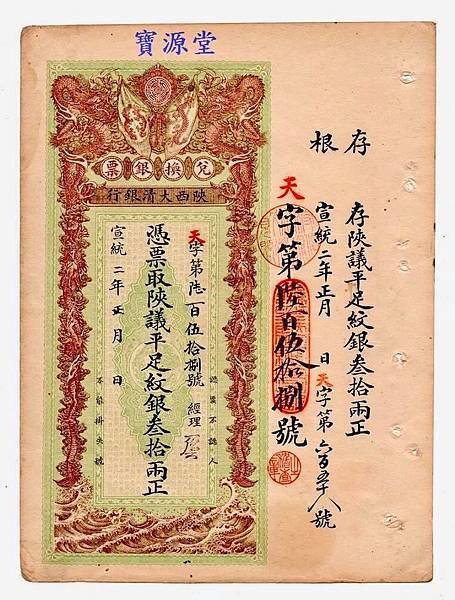 寶源堂
存根
存陝議平足紋銀叁拾兩正
宣統二年正月 日 天字第六百五十八號
天字第陸百伍拾捌號
兌換銀票
陝西大清銀行
認票不認人
天字第陸百伍拾捌號 經理
憑票取陝議平足紋銀叁拾兩正
宣統二年正月 日
不能掛失號